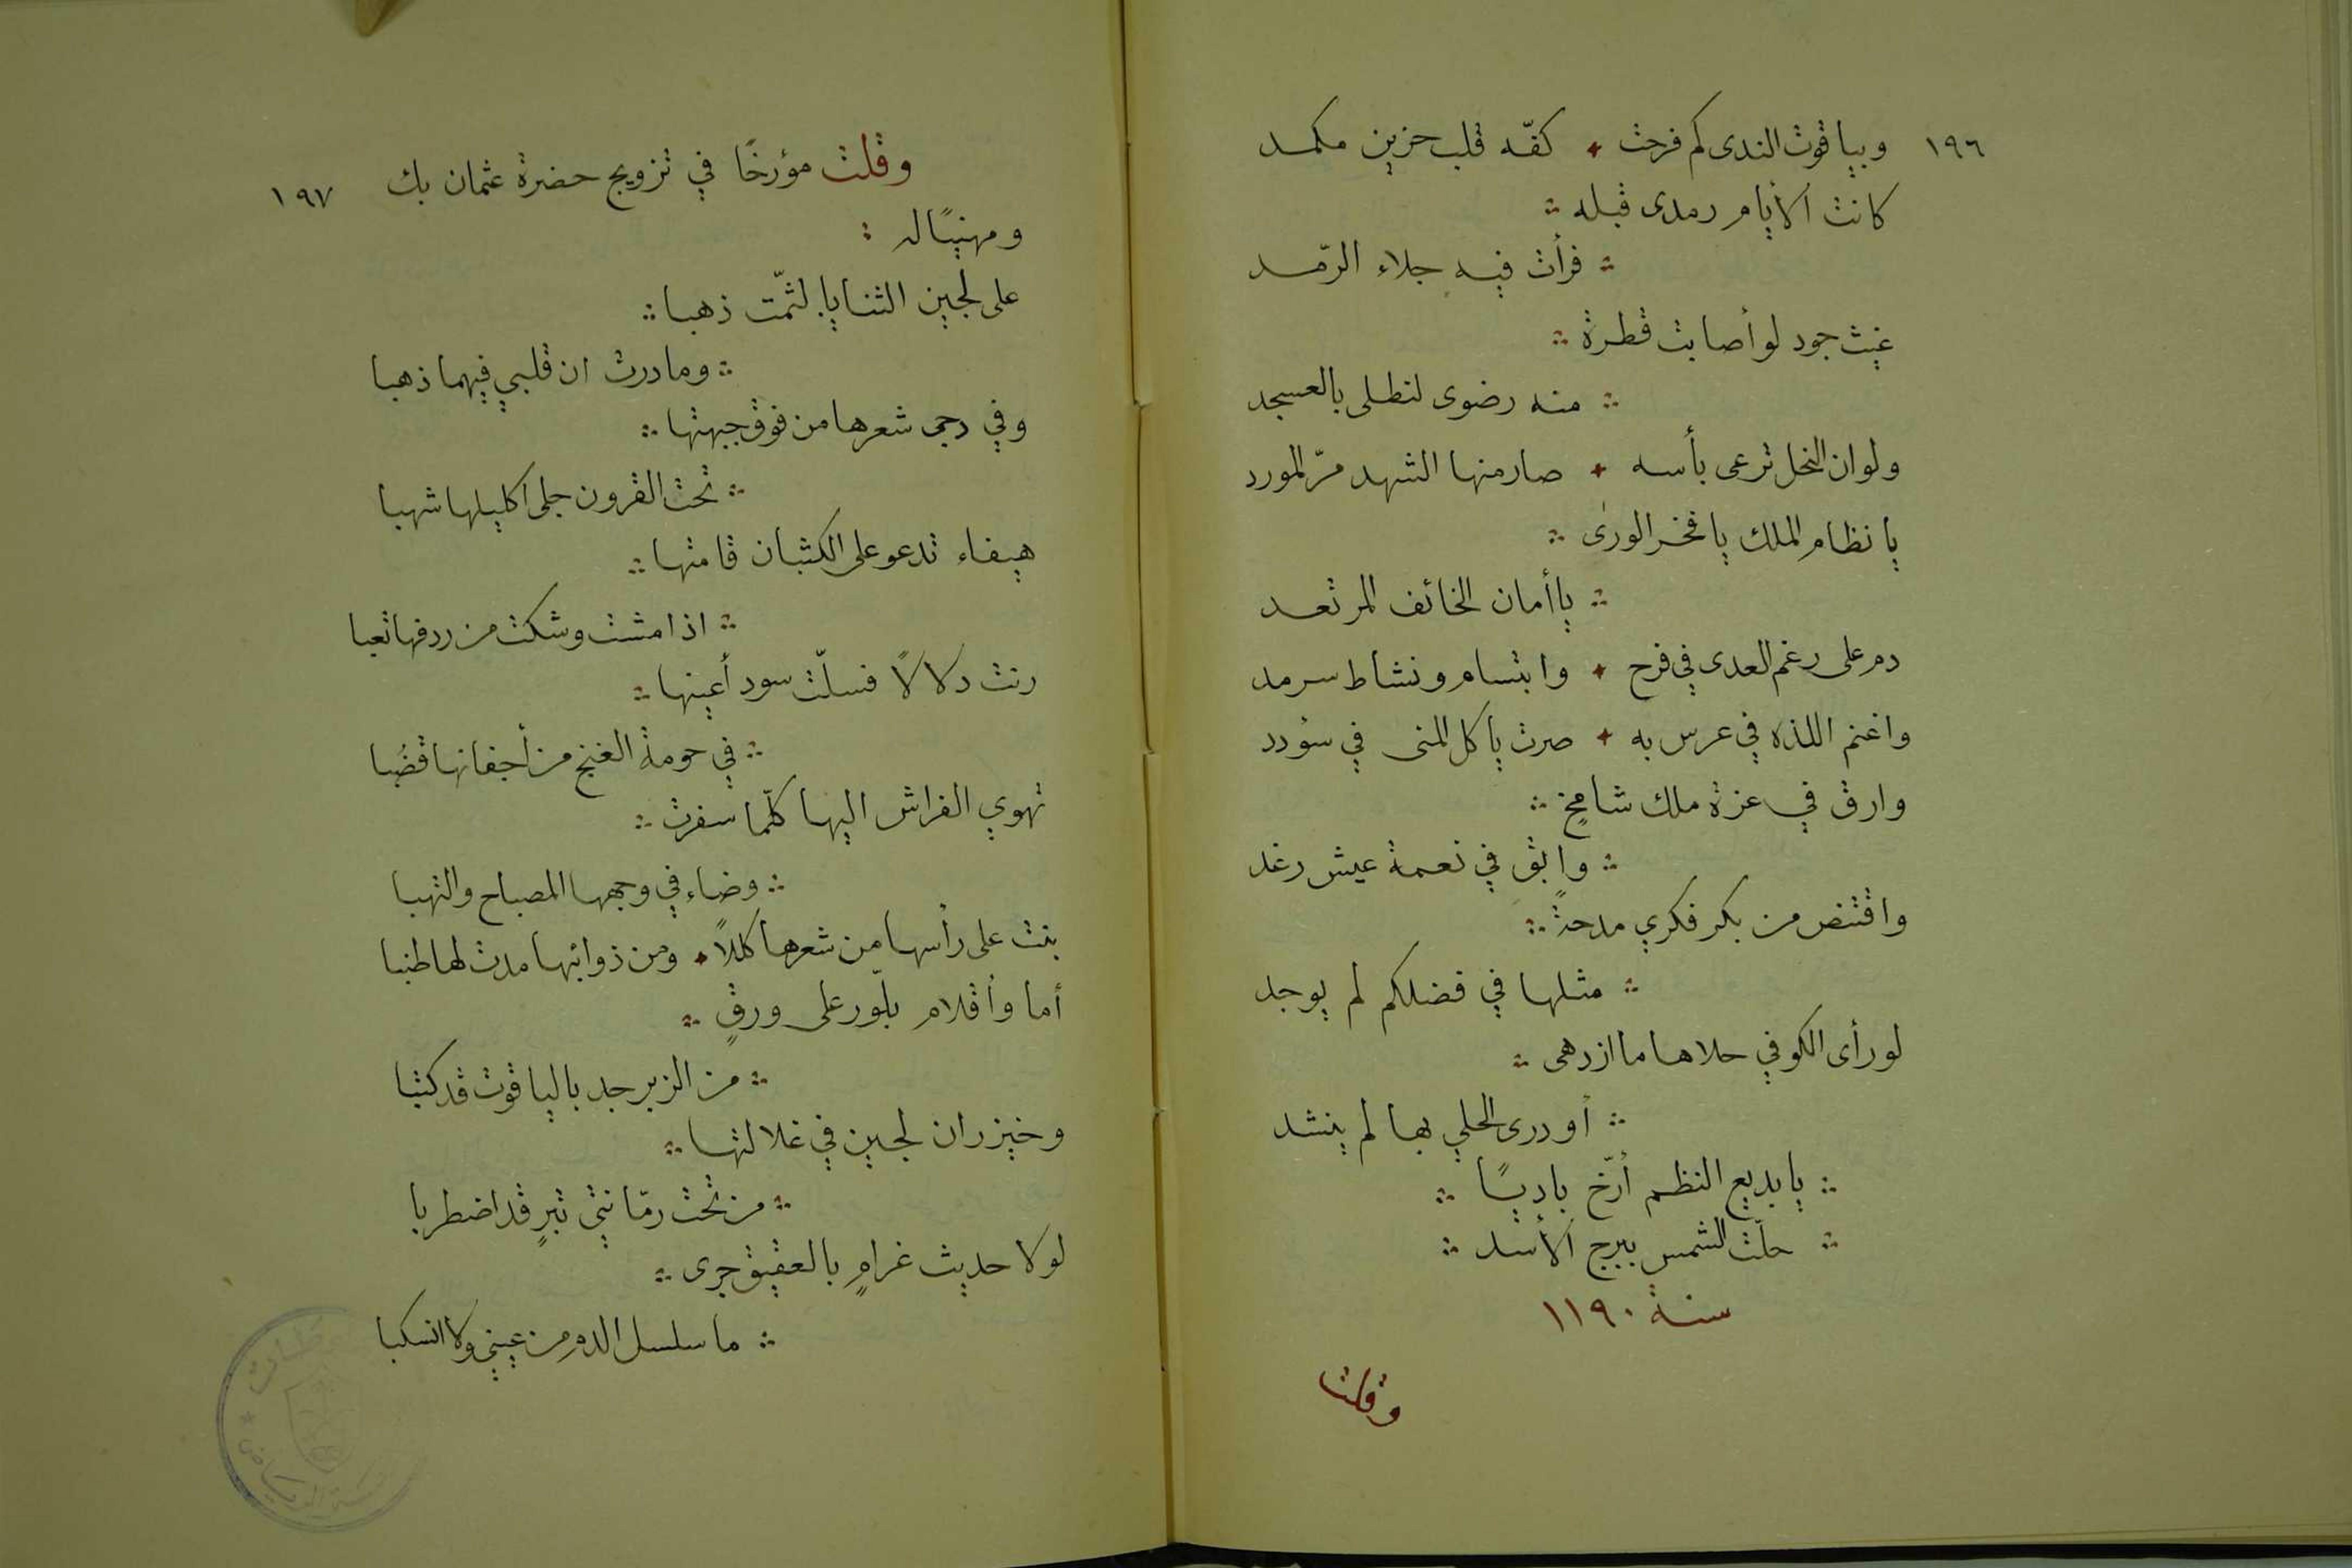 ١٩٦
وبياقوت الندى كم فرحت ✦ كفّه قلب حزين مكمد
كانت الأيام رمدى قبله ∴
∴ فرأت فيه جلاء الرّمد
غيث جود لو أصابت قطرة ∴
∴ منه رضوى لتطلى بالعسجد
ولو ان النحل ترعى بأسه ✦ صار منها الشهد مرّ المورد
يا نظام الملك يا فخر الورى ∴
∴ يا أمان الخائف المرتعد
دم على رغم العدى في فرح ✦ وابتسام ونشاط سرمد
واغنم اللذه في عرس به ✦ صرت يا كل المنى في سؤدد
وارق في عزة ملك شامخٍ ∴
∴ وابق في نعمة عيش رغد
واقتنض من بكر فكري مدحةً ∴
∴ مثلها في فضلكم لم يوجد
لو رأى الكوفي حلاها ما ازدهى ∴
∴ أو درى الحلي بها لم ينشد
∴ يا بديع النظم أرّخ باديًا ∴
∴ حلّت الشمس ببرج الأسد ∴
سنة ١١٩٠
وقلت
١٩٧
وقلت مؤرخًا في تزويج حضرة عثمان بك
ومهنيًا له :
على لجين الثنايا لثّمت ذهبا ∴
∴ وما درت ان قلبي فيهما ذهبا
وفي دجى شعرها من فوق جبهتها ∴
∴ تحت القرون جلى اكليلها شهبا
هيفاء تدعو على الكثبان قامتها ∴
∴ اذا مشت وشكت من ردفها تعبا
رنت دلالاً فسلّت سود أعينها ∴
∴ في حومة الغنج من أجفانها قضُبا
تهوي الفراش اليها كلّما سفرت ∴
∴ وضاء في وجهها المصباح والتهبا
بنت على رأسها من شعرها كللاً ✦ ومن ذوائبها مدت لها طنبا
أما وأقلام بلّور على ورقٍ ∴
∴ من الزبرجد بالياقوت قد كتبا
وخيزران لجين في غلالتها ∴
∴ من تحت رمّانتي تبرٍ قد اضطربا
لولا حديث غرامٍ بالعقيق جرى ∴
∴ ما سلسل الدم من عيني ولا انسكبا